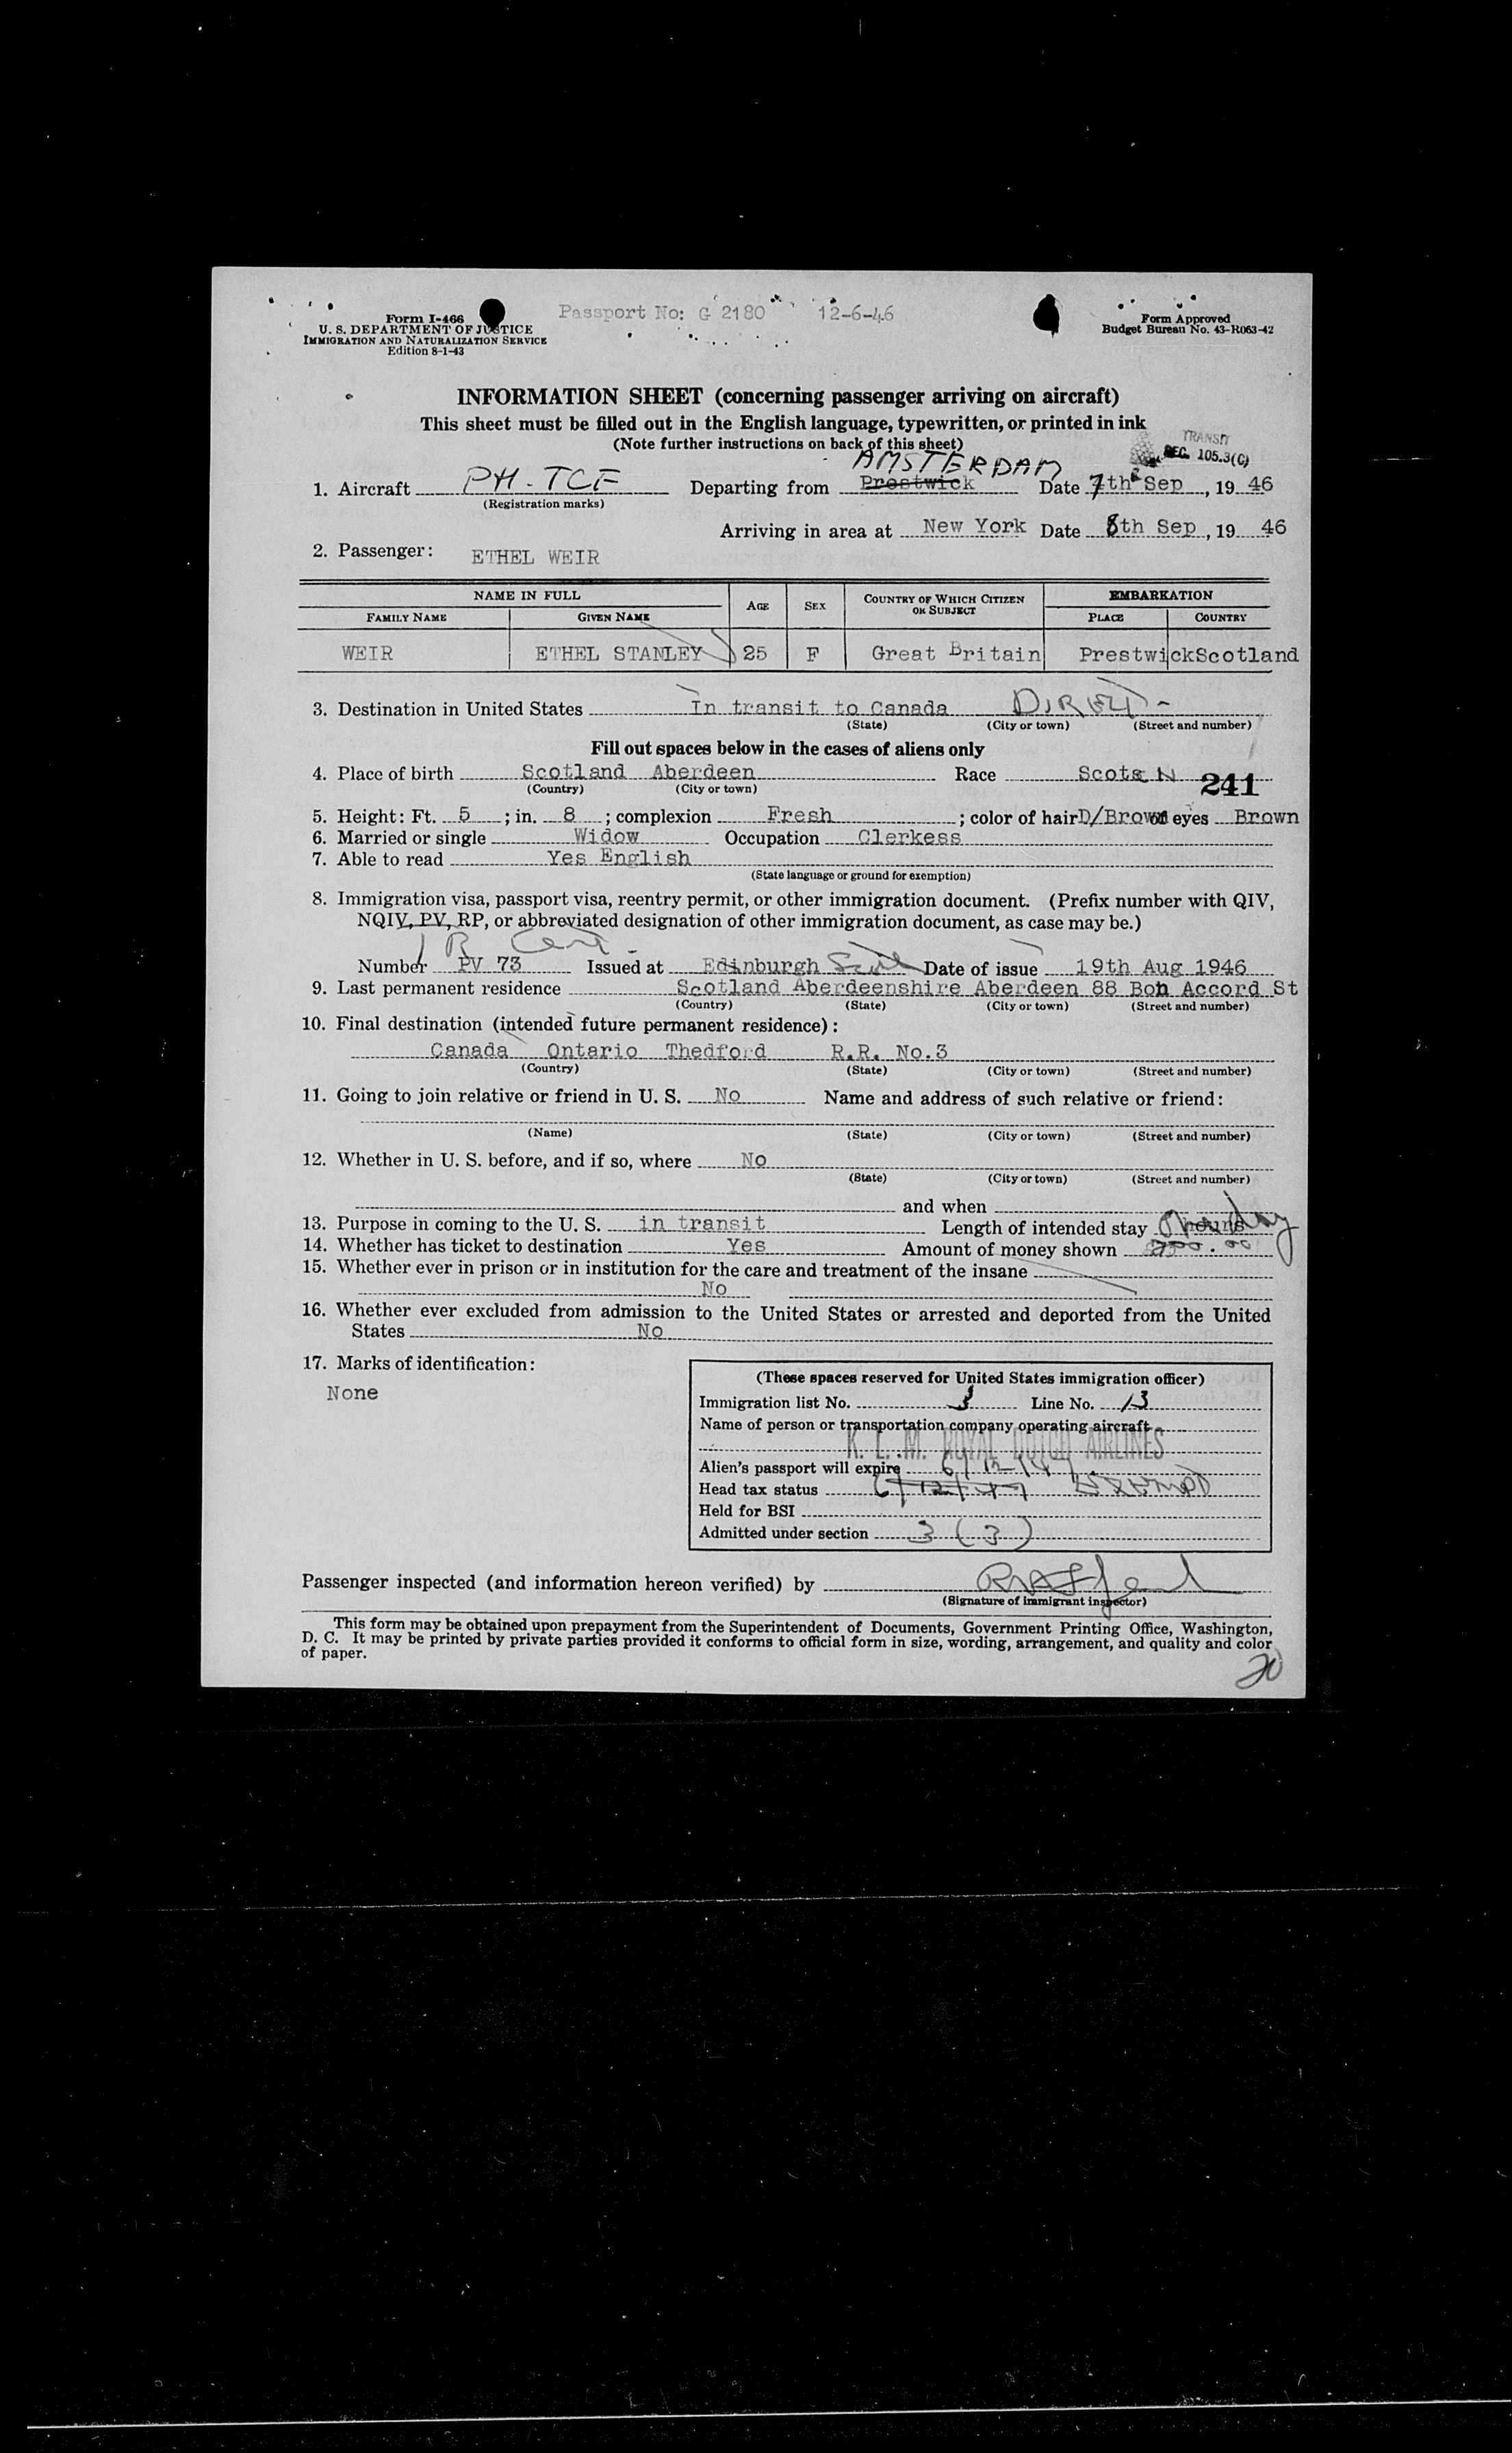 Form I-466
U. S. DEPARTMENT OF JUSTICE
IMMIGRATION AND NATURALIZATION SERVICE
Edition 8-1-43
Passport No: G 2180 12-6-46
Form Approved
Budget Bureau No. 43-R063-42
INFORMATION SHEET (concerning passenger arriving on aircraft)
This sheet must be filled out in the English language, typewritten, or printed in ink
(Note further instructions on back of this sheet)
TRANSIT
SEC. 105.3(C)
AMSTERDAM
1. Aircraft PH-TCF Departing from Prestwick Date 7th Sep, 19 46
(Registration marks)
Arriving in area at New York Date 8th Sep, 19 46
2. Passenger: ETHEL WEIR
NAME IN FULL AGE SEX COUNTRY OF WHICH CITIZEN OR SUBJECT EMBARKATION
FAMILY NAME GIVEN NAME PLACE COUNTRY
WEIR ETHEL STANLEY 25 F Great Britain Prestwick Scotland
3. Destination in United States In transit to Canada DIRECT -
(State) (City or town) (Street and number)
Fill out spaces below in the cases of aliens only
4. Place of birth Scotland Aberdeen Race Scots 241
(Country) (City or town)
5. Height: Ft. 5; in. 8; complexion Fresh; color of hair D/Brown of eyes Brown
6. Married or single Widow Occupation Clerkess
7. Able to read Yes English
(State language or ground for exemption)
8. Immigration visa, passport visa, reentry permit, or other immigration document. (Prefix number with QIV,
NQIV, PV, RP, or abbreviated designation of other immigration document, as case may be.)
Number PV 73 Issued at Edinburgh Date of issue 19th Aug 1946
9. Last permanent residence Scotland Aberdeenshire Aberdeen 88 Bon Accord St
(Country) (State) (City or town) (Street and number)
10. Final destination (intended future permanent residence):
Canada Ontario Thedford R.R. No.3
(Country) (State) (City or town) (Street and number)
11. Going to join relative or friend in U. S. No Name and address of such relative or friend:
(Name) (State) (City or town) (Street and number)
12. Whether in U. S. before, and if so, where No
(State) (City or town) (Street and number)
and when
13. Purpose in coming to the U. S. in transit Length of intended stay hours day
14. Whether has ticket to destination Yes Amount of money shown 200.00
15. Whether ever in prison or in institution for the care and treatment of the insane
No
16. Whether ever excluded from admission to the United States or arrested and deported from the United
States No
17. Marks of identification:
None
(These spaces reserved for United States immigration officer)
Immigration list No. 3 Line No. 13
Name of person or transportation company operating aircraft
K. L. M. ROYAL DUTCH AIRLINES
Alien's passport will expire 6/12/47
Head tax status 6/12/47 EXEMPT
Held for BSI
Admitted under section 3 (3)
Passenger inspected (and information hereon verified) by
(Signature of immigrant inspector)
This form may be obtained upon prepayment from the Superintendent of Documents, Government Printing Office, Washington,
D. C. It may be printed by private parties provided it conforms to official form in size, wording, arrangement, and quality and color
of paper.
20